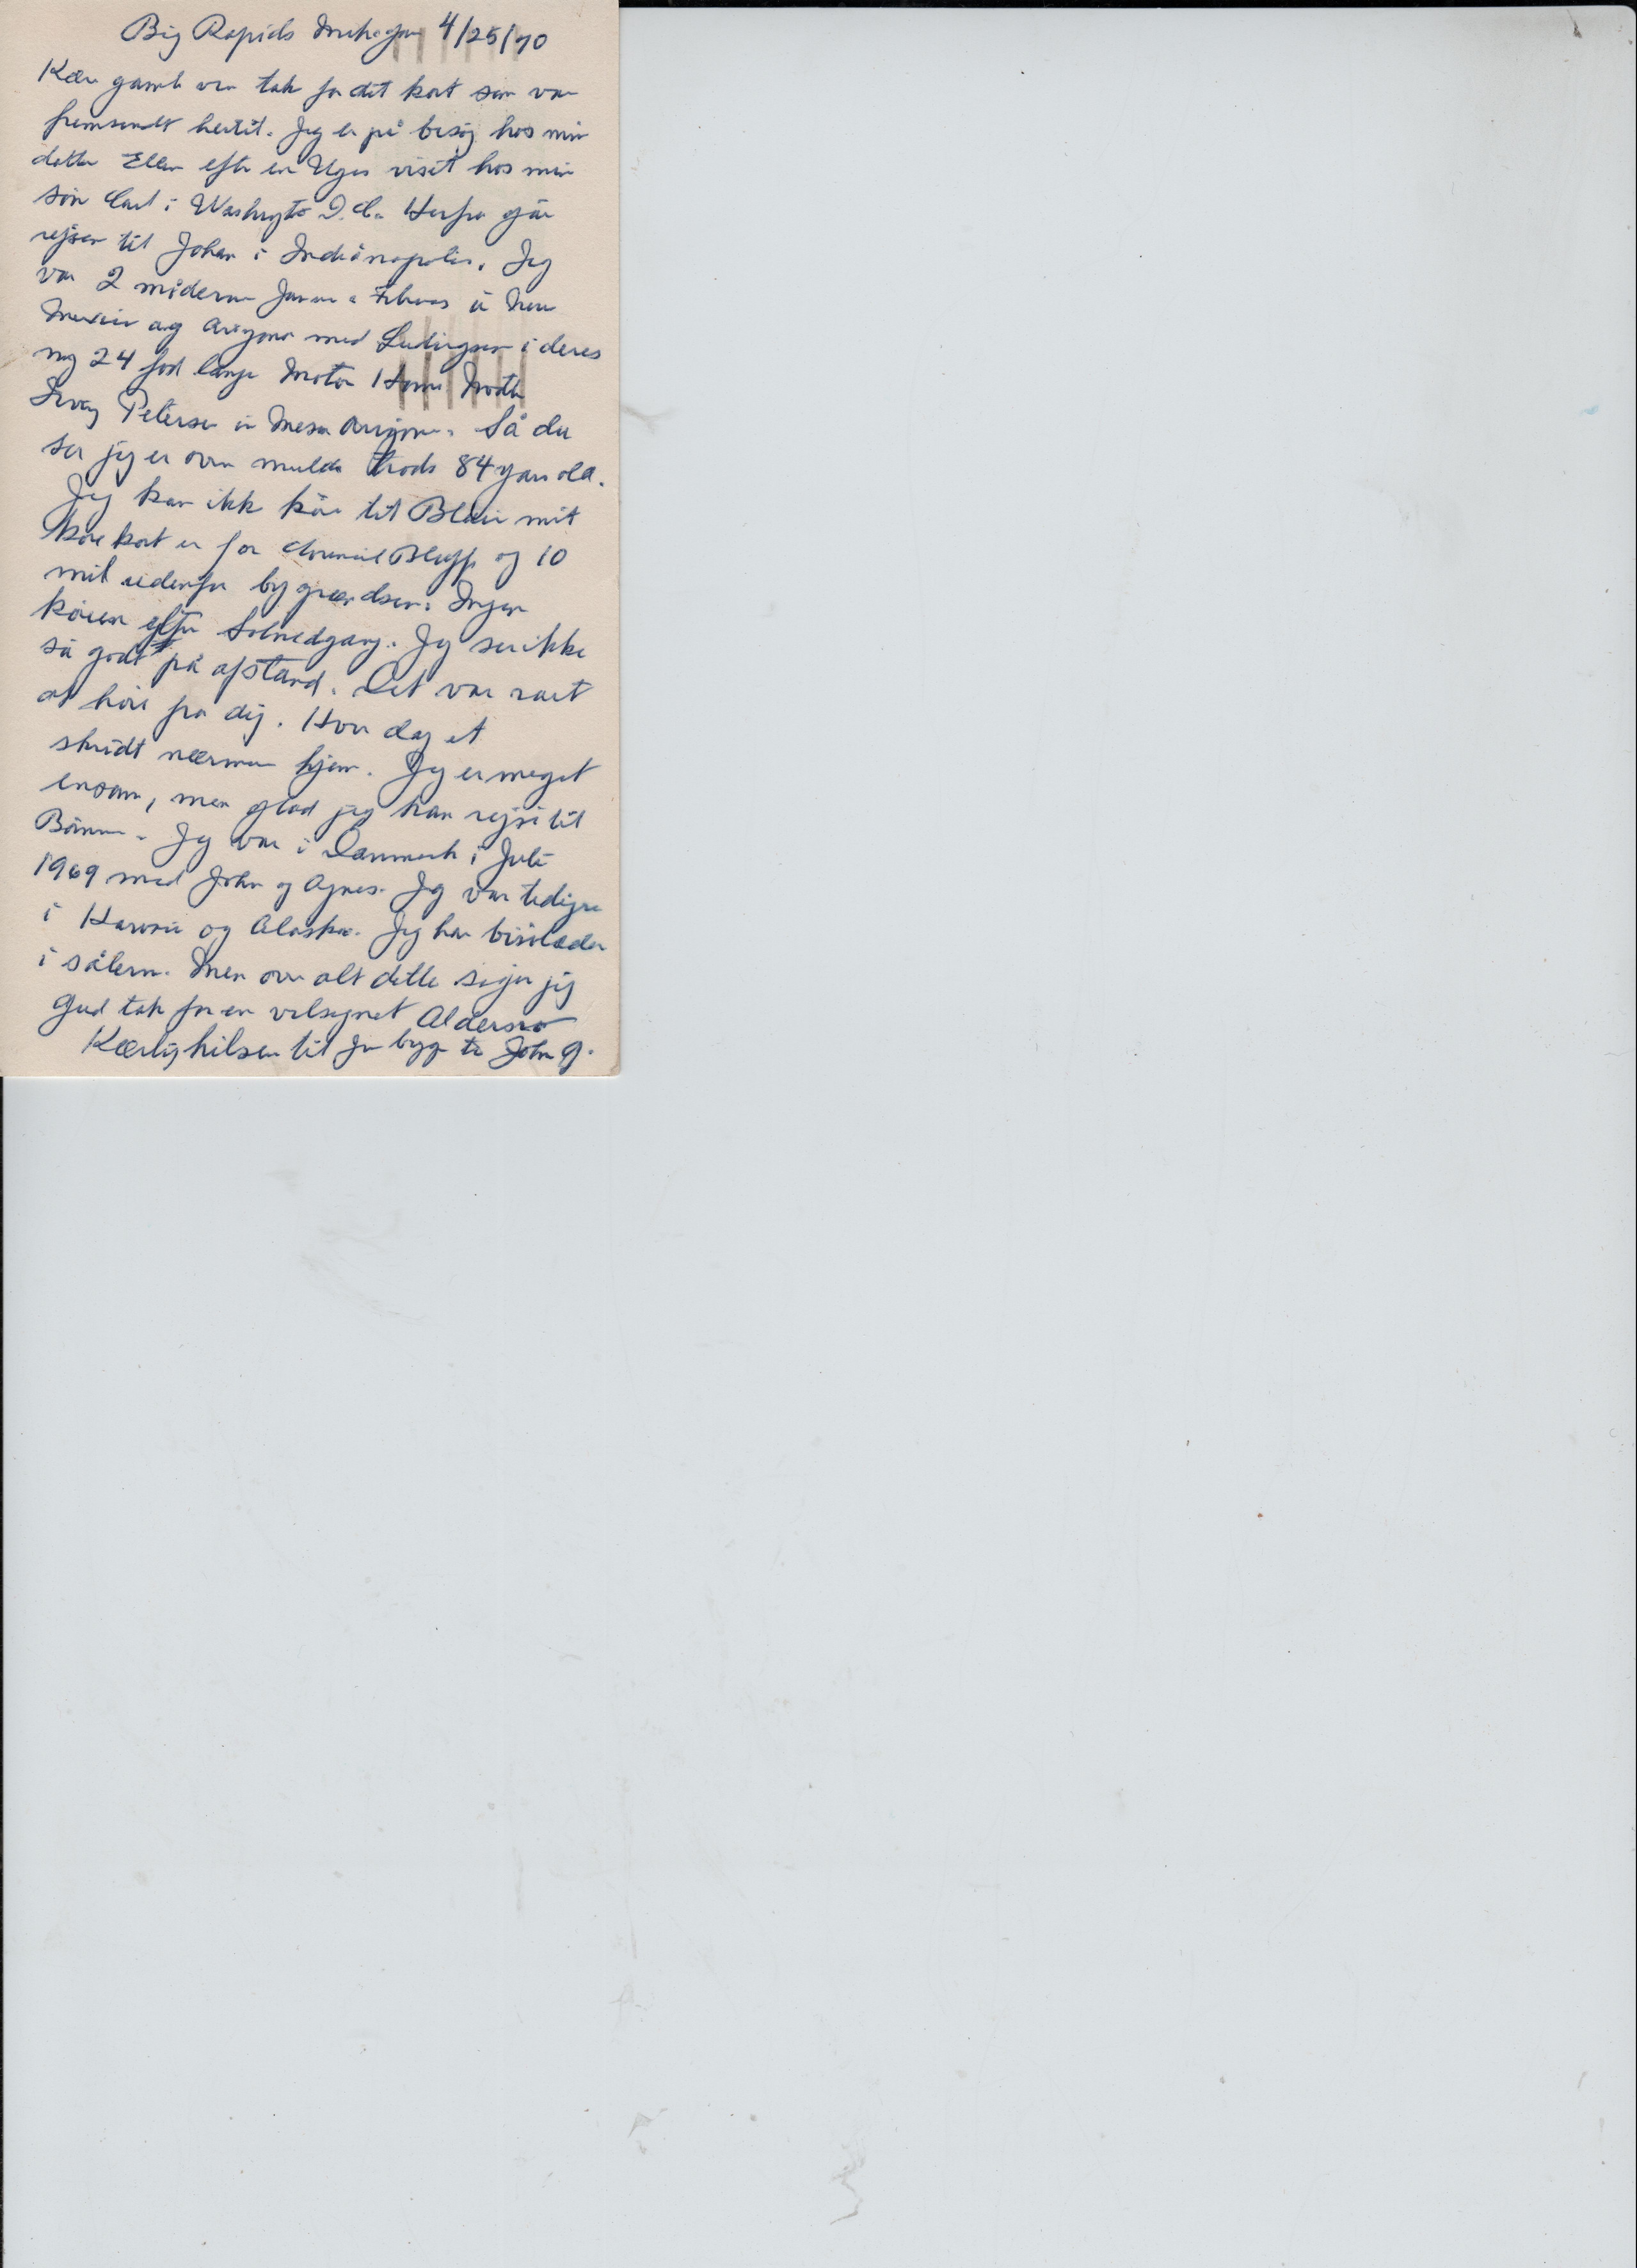 Big Rapids Michigan 4/25/70
Kære gamle ven tak for det kort som var
fremsendt hertil. Jeg er på besøg hos min
datter Ellen efter en Uges visit hos min
søn Carl i Washington D.C. Herfra går
rejsen til Johan i Indianapolis. Jeg
var 2 måderne Januar Februar i New
Mexico og Arizona med Ludvigsen i deres
ny 24 fod lange Motor Home Mødte
Petersen in Mesa Arizona. Så du
ser jeg er oven mulde trods 84 years old.
Jeg kan ikke köre til Blair mit
köre kort er for Council Bluffs og 10
mil udenfor by grændsen. Ingen
kören efter Solnedgang. Jeg ser ikke
så godt på afstand. Det var rart
at höre fra dig. Hver dag et
skridt nærmere hjem. Jeg er meget
ensom, men glad jeg kan rejse til
Börnene. Jeg var i Danmark i Juli
1969 med John og Agnes. Jeg var tidligere
i Hawaii og Alaska. Jeg har
i Men over alt dette siger jeg
Gud tak for en velsignet Alderdom
Kærlig hilsen til Jer begge to John G.